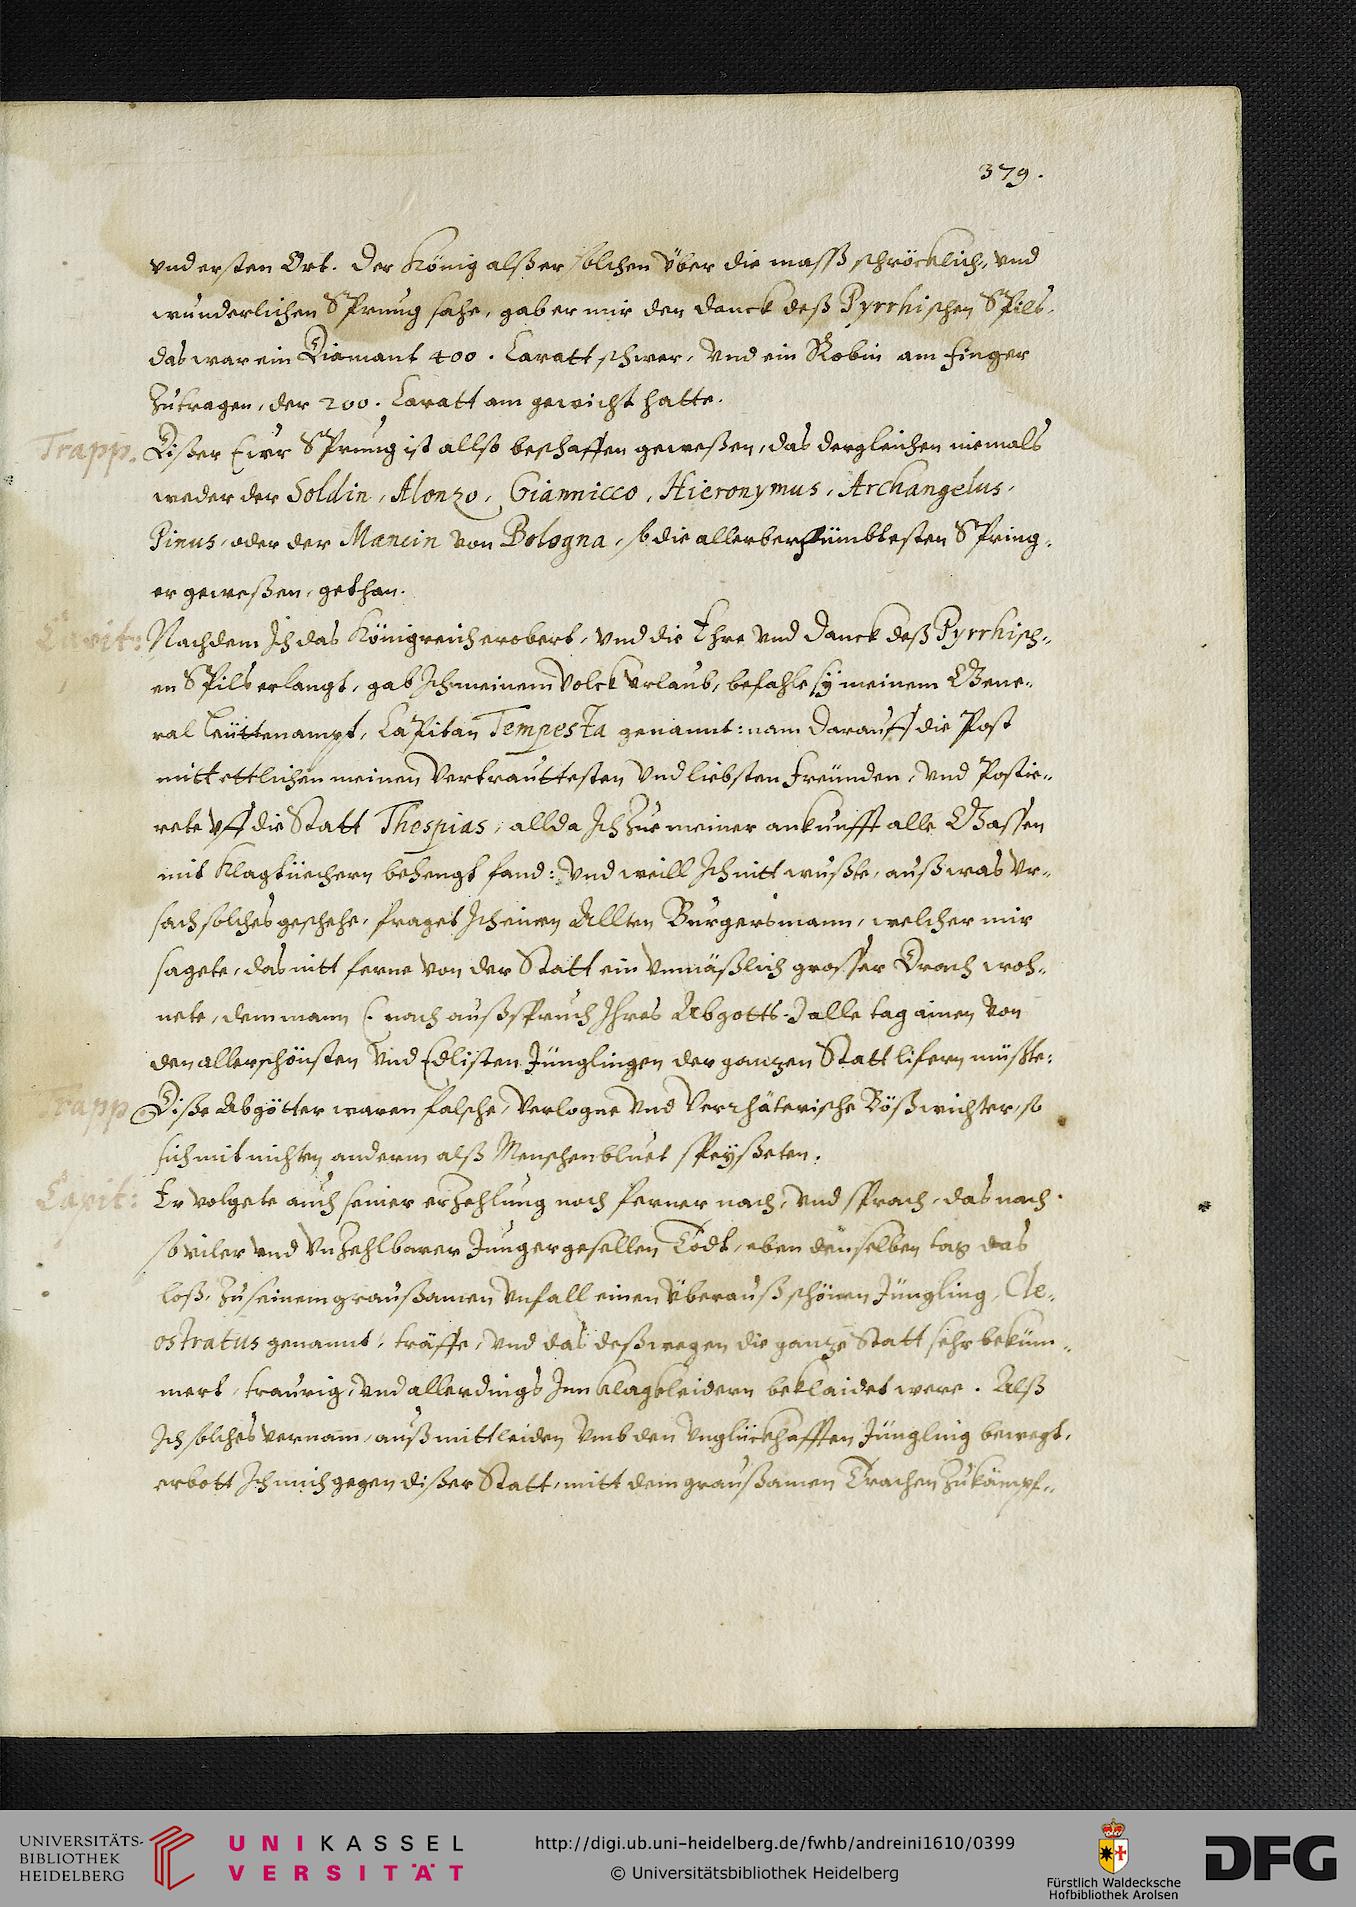 379.
vnd ersten Ort. Der König alß er solchen über die masß schröcklich, vnd
wunderlichen Sprung sahe, gab er mir den danck deß Pyrrhischen Spils,
das war ein Diamant 400. Caratt schwer, vnd ein Robin am finger
zutragen, der 200. Caratt am gewicht hatte.
Trapp. Dißer Ewr Sprung ist allso beschaffen geweßen, das dergleichen niemals
weder der Soldin, Alonzo, Giannicco, Hieronymus, Archangelus,
Pinus, oder der Mancin von Bologna, so die allerberhümbtesten Spring-
er geweßen, gethan.
Cavit: Nachdem Ich das Königreich erobert, vnd die Ehre vnd danck deß Pyrrhisch-
en Spils erlangt, gab Ich meinem volck vrlaub, befahle sÿ meinem Gene-
ral leüttenampt, Capitan Tempesta genannt: nam darauff die Post
mitt ettlichen meinen vertrauttesten vnd liebsten freünden, vnd Postie-
rete vff die Statt Thespias, allda Ich zue meiner ankunfft alle Gassen
mit Klagtüechern behengt fand: vnd weill Ich nitt wußte, auß was vr-
sach solches geschehe, fraget Ich einen Allten Burgersmann, welcher mir
sagete, das nitt ferne von der Statt ein vnmäßlich grosser Drach woh-
nete, dem mann (: nach außspruch Ihres Abgotts :) alle tag ainen von
den allerschönsten vnd Edlisten Jünglingen der ganzen Statt lifern müßte:
Trapp. Diße Abgötter waren falsche, verlogne vnd verrhäterische Bößwichter, so
sich mit nichten anderm alß Menschenbluet speÿßeten.
Cavit: Er volgete auch seiner erzehlung noch ferner nach, vnd sprach, das nach
so viler vnd vnzehlbarer Jungergesellen Todt, eben denselben tag das
loß, zu seinem graußamen vnfall einen überauß schönen Jüngling, Cle-
ostratus genannt, träffe, vnd das deßwegen die ganze Statt sehr beküm-
mert, traurig, vnd allerdings Inn klagkleidern beklaidet were. Alß
Ich solches vernam, auß mittleiden vmb den vnglückhafften Jüngling bewegt,
erbott Ich mich gegen dißer Statt, mitt dem graußamen Trachen zukämpf-
UNIVERSITÄTS-
BIBLIOTHEK
HEIDELBERG
UNIKASSEL
VERSITÄT
http://digi.ub.uni-heidelberg.de/fwhb/andreini1610/0399
© Universitätsbibliothek Heidelberg
Fürstlich Waldecksche
Hofbibliothek Arolsen
DFG